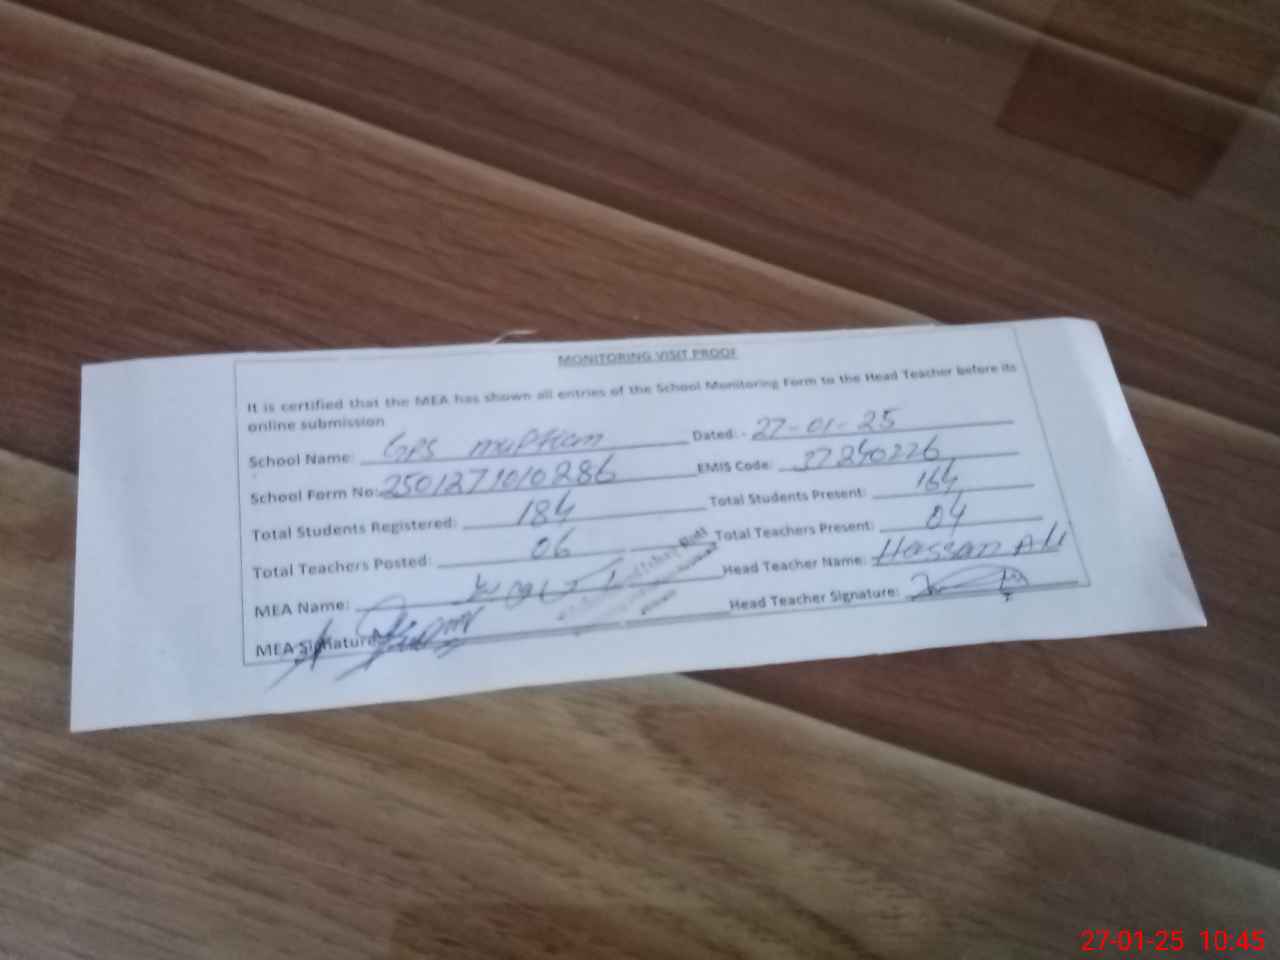 MONITORING VISIT PROOF
It is certified that the MEA has shown all entries of the School Monitoring Form to the Head Teacher before its
online submission
School Name: GPS Dated: - 27-01-25
School Form No: 2501271010286 EMIS Code: 37240226
Total Students Registered: 184 Total Students Present: 164
Total Teachers Posted: 06 Total Teachers Present: 04
MEA Name: Head Teacher Name: Hassan Ali
MEA Signature: Head Teacher Signature:
27-01-25 10:45